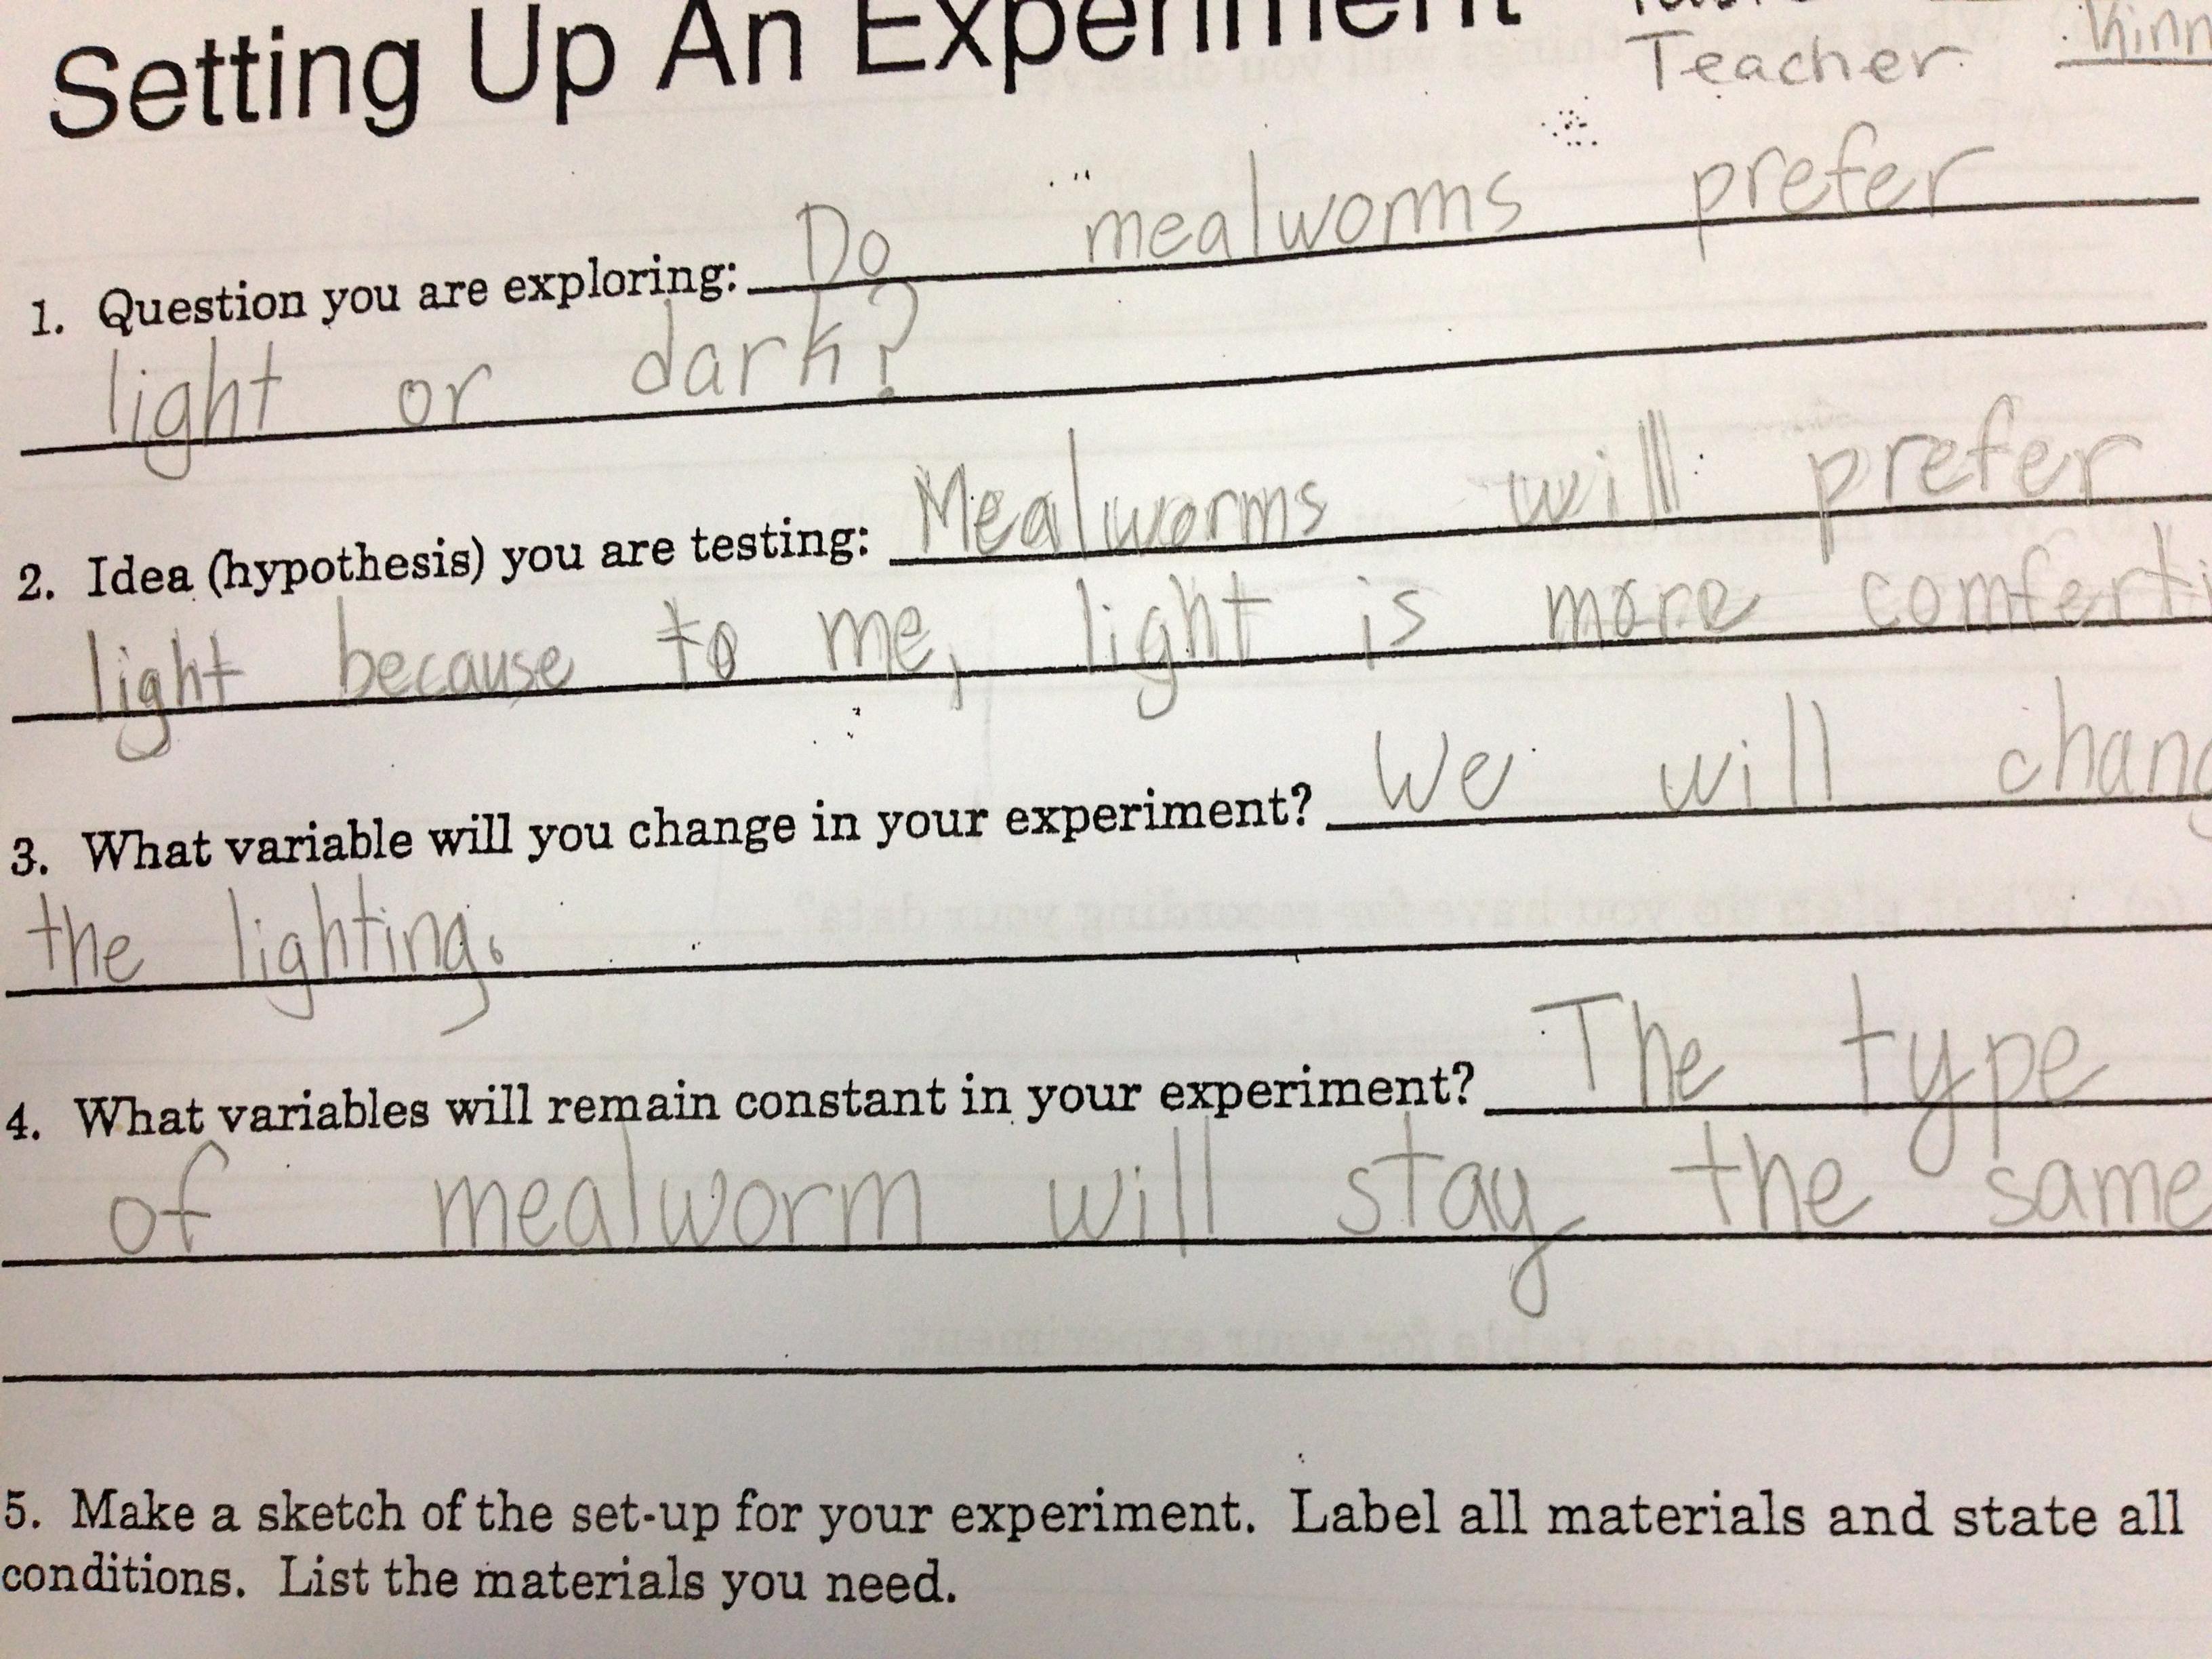 Setting Up An Experiment
Teacher
1. Question you are exploring: Do mealworms prefer
light or dark?
2. Idea (hypothesis) you are testing: Mealworms will prefer
light because to me, light is more comferti
3. What variable will you change in your experiment? We will chang
the lighting.
4. What variables will remain constant in your experiment? The type
of mealworm will stay the same
5. Make a sketch of the set-up for your experiment. Label all materials and state all
conditions. List the materials you need.